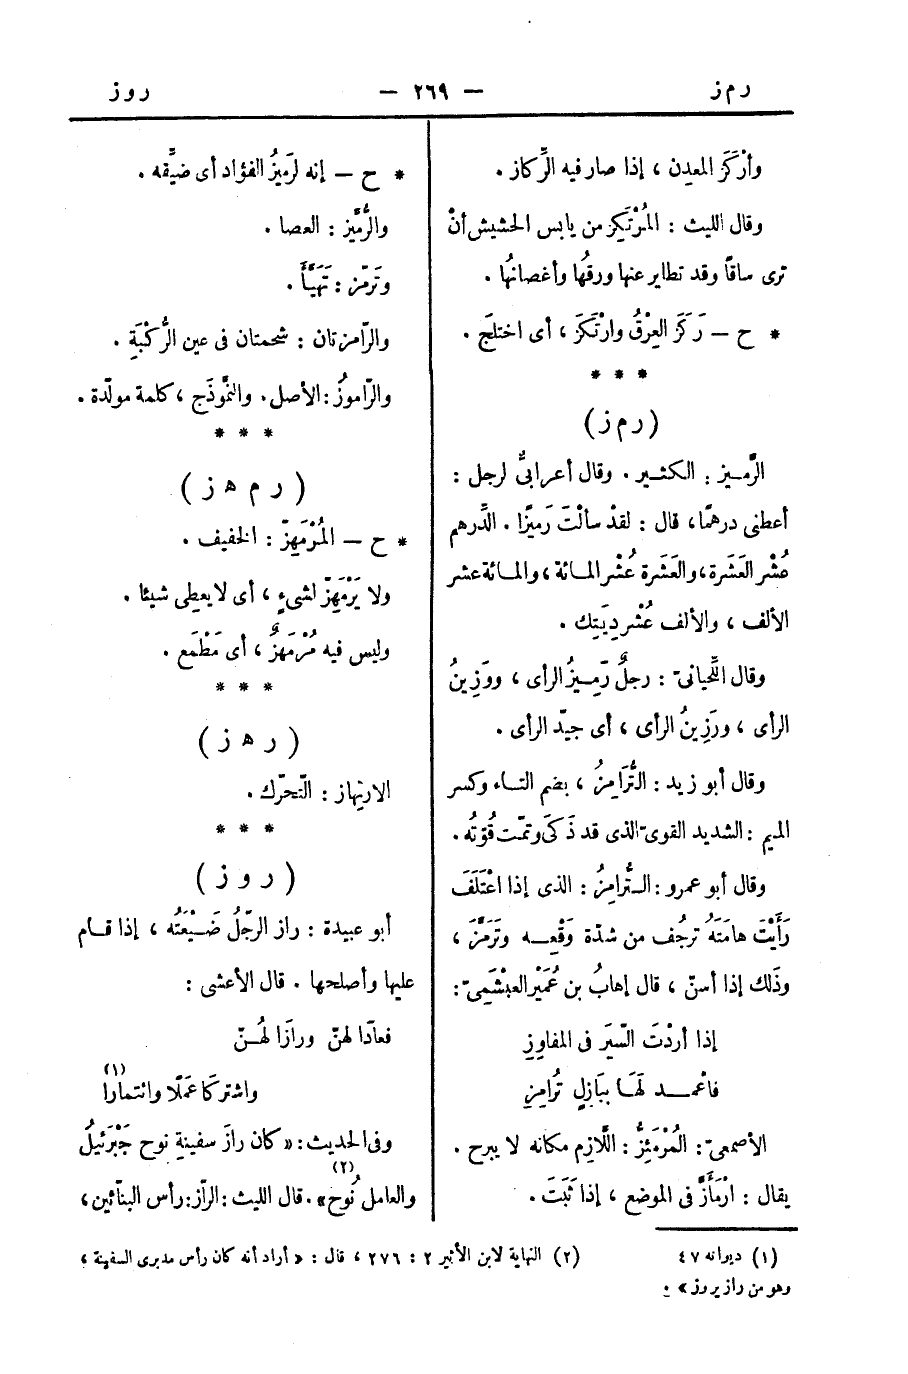 رمز — ٢٦٩ — روز
وأَرْكَزَ المعدِن ، إذا صار فيه الرِّكاز .
وقال الليث : المُرْتَكِز من يابس الحشيش أنْ
ترى ساقًا وقد تطاير عنها ورقُها وأغصانُها .
* ح — رَكَزَ العِرْقُ وارْتَكَزَ ، أى اختلَج .
* * *
(رمز)
الرَّميز : الكثير . وقال أعرابىٌّ لرجل :
أعطنى درهمًا ، قال : لقدْ سألْتَ رَميزًا . الدِّرهم
عُشْر العَشَرة ، والعَشَرة عُشْر المائة ، والمائة عشر
الألف ، والألف عُشْر دِيَتِك .
وقال اللِّحيانىّ : رجلٌ رَمِيزُ الرأى ، ووَزِينُ
الرأى ، ورَزِينُ الرأى ، أى جيّد الرأى .
وقال أبو زيد : التُّرَامِزُ ، بضم التاء وكسر
الميم : الشديد القوىّ الذى قد ذَكَى وتمّت قُوّتُه .
وقال أبو عمرو : التُّرامِزُ : الذى إذا اعْتَلَفَ
رَأَيْتَ هامَتَهُ ترجُف من شدّة وَقْعِه وتَرَمَّزَ ،
وذلك إذا أسنّ ، قال إهابُ بن عُمَيْر العبشَمِىّ :
إذا أردْتَ السَّيرَ فى المفاوِزِ
فاعْمد لَهَا ببَازِلٍ تُرامِزِ
الأصمعىّ : المُرْمَئِزُّ : اللَّازِم مكانه لا يبرح .
يقال : ارْمَأَزَّ فى الموضع ، إذا ثَبَتَ .
* ح — إنه لرَميزُ الفؤاد أى ضيِّقه .
والرُّمَّيز : العصا .
وتَرَمّز : تَهَيَّأَ .
والرّامزتان : شحمتان فى عين الرُّكْبَةِ .
والرّاموزُ : الأصل . والنَّموذَج ، كلمة مولّدة .
* * *
( ر م ه ز )
* ح — المُرْمَهِزّ : الخفيف .
ولا يَرْمَهِزّ لشىءٍ ، أى لا يعطِى شيئا .
وليس فيه مُرْمَهَزٌّ ، أى مَطْمَع .
* * *
( ر ه ز )
الارتِهاز : التّحرّك .
* * *
( ر و ز )
أبو عبيدة : راز الرجُلُ ضَيْعَتَه ، إذا قام
عليها وأصلحها . قال الأعشى :
فعادَا لهنّ ورازَا لهُنّ
واشتركَا عَمَلًا وائتمارا (١)
وفى الحديث : « كان رازَ سفينةِ نوح جَبْرئيلُ
والعامل نُوح» (٢) . قال الليث : الرّاز : رأس البنّائين ،
(١) ديوانه ٤٧ (٢) النهاية لابن الأثير ٢ : ٢٧٦ ، قال : « أراد أنه كان رأس مدبرى السفينة ،
وهو من راز يروز » .